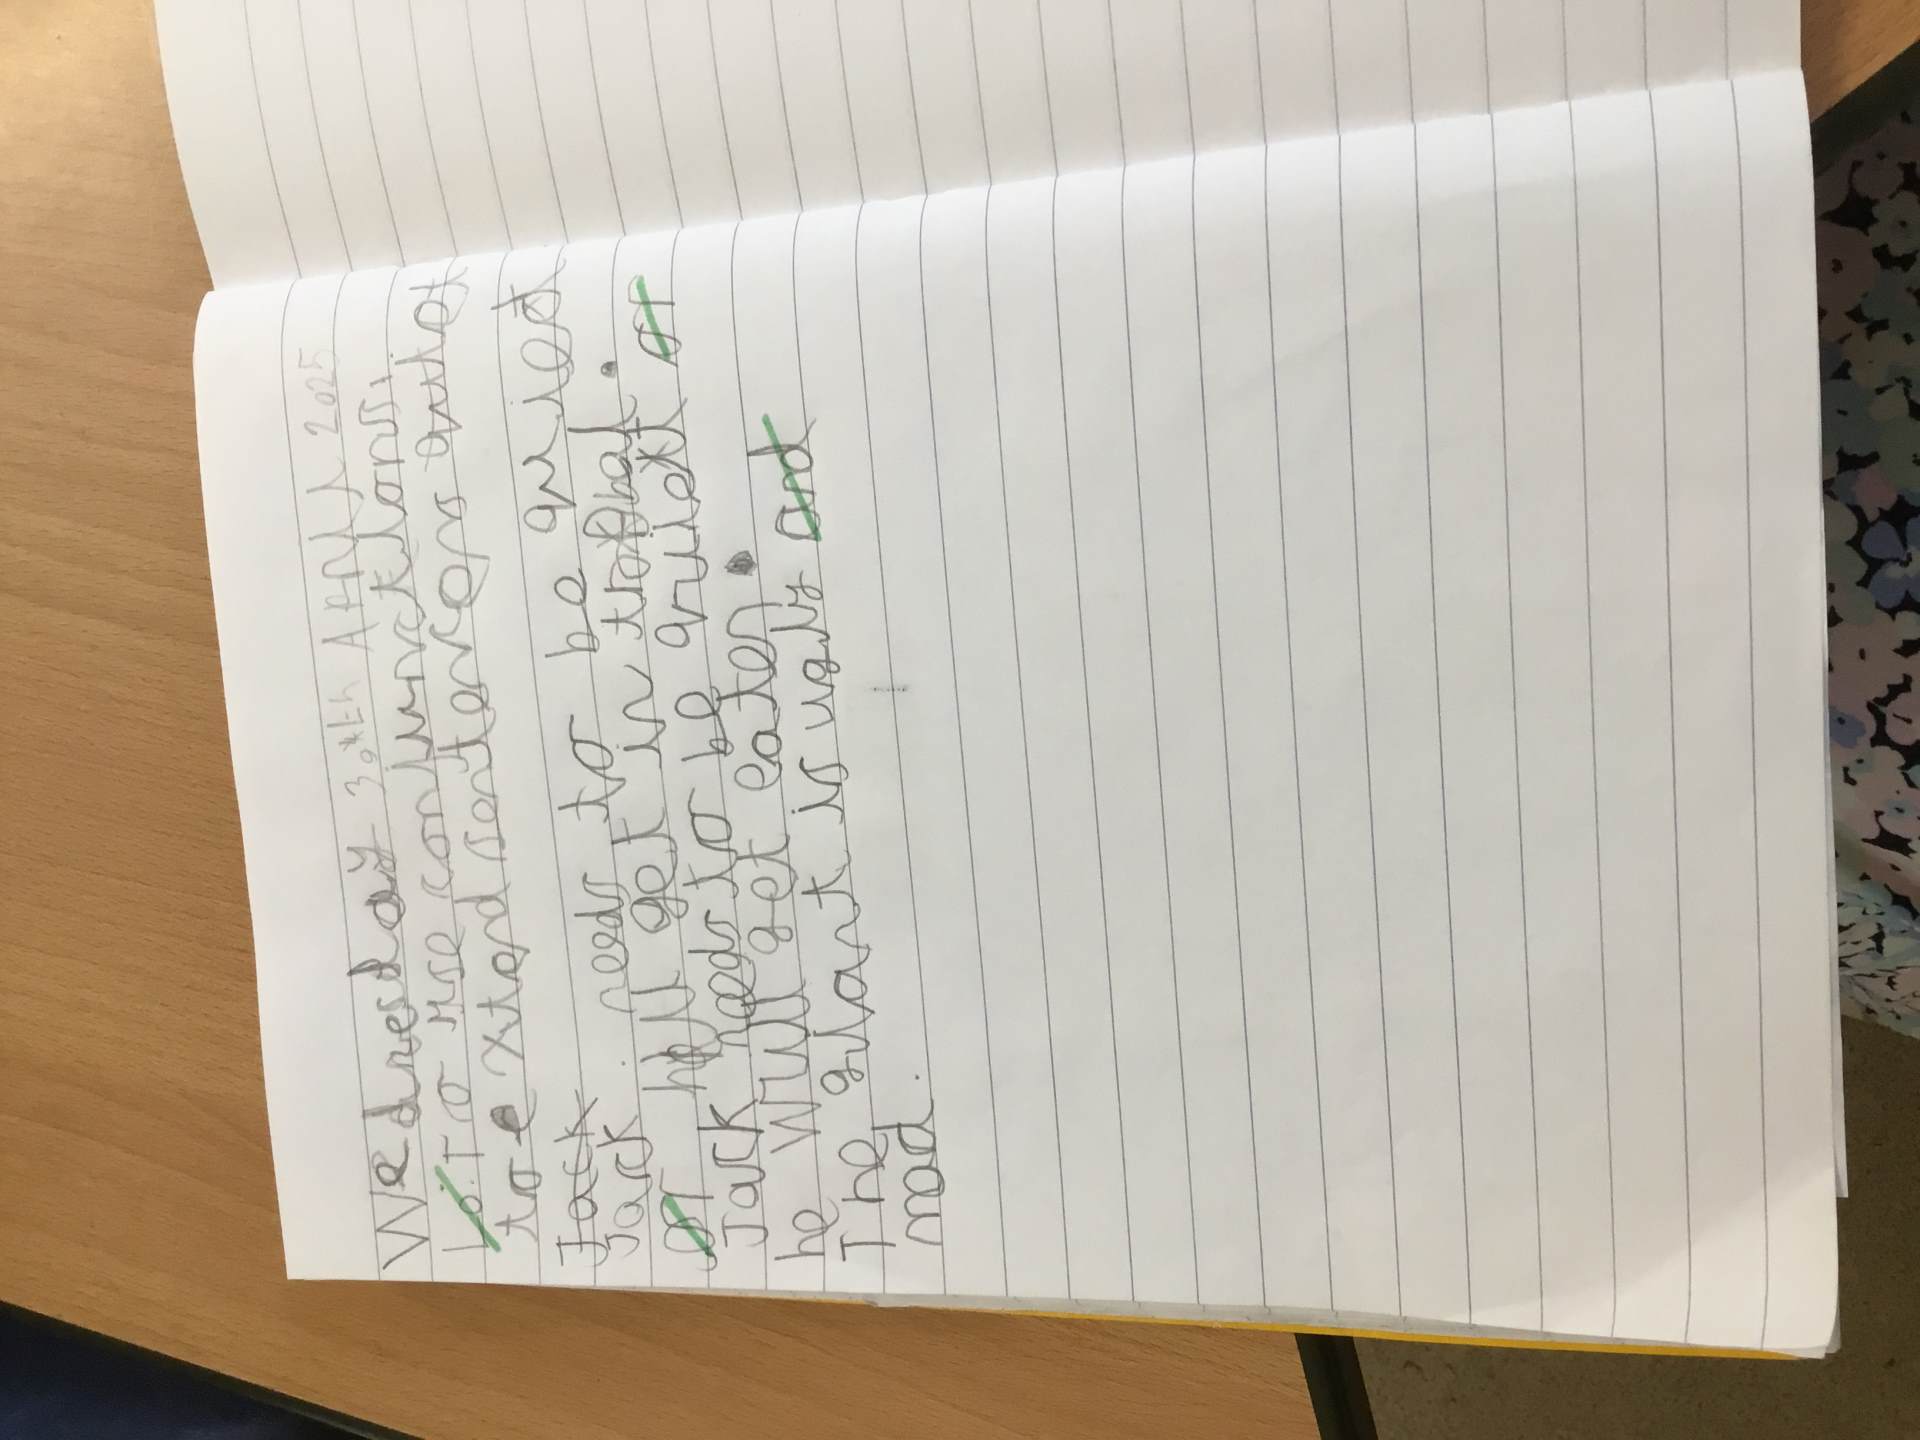 Wednesday 30th April 2025
Lo: To use conjunctions
to extend sentences
Jack needs to be quiet
Jack needs to be quiet
or he'll get in
Jack needs to be quiet or
he will get eaten.
The giant is ugly and
mad.